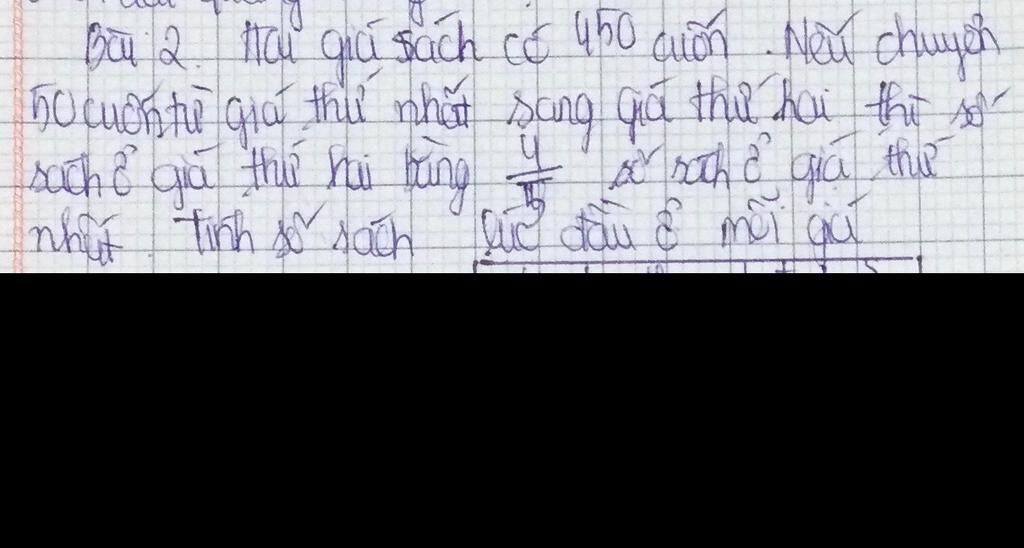 Bài 2. Hai giá sách có 450 cuốn. Nếu chuyển
50 cuốn từ giá thứ nhất sang giá thứ hai thì số
sách ở giá thứ hai bằng 4/5 số sách ở giá thứ
nhất. Tính số sách lúc đầu ở mỗi giá